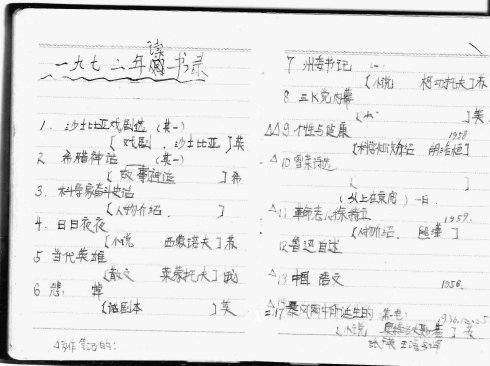 一九七二年读书录
1. 沙士比亚戏剧选 (其一)
[戏剧 . 沙士比亚]英
2 希腊神话 (其一)
[故事神话 ]希
3. 科学家奋斗史话
[人物介绍. ]
4. 日日夜夜
[小说 西蒙诺夫]苏
5 当代英雄
[散文 莱蒙托夫]俄
6 悲 悼
[话剧本 ]美
△多作笔记的:
7 州委书记 (一)
[小说 柯切托夫]苏
8 三K党内幕
[小 ]美
△△9 个性与健康 1958
[科学知识介绍 ]
△10 雪莱诗选
[ ]
(以上在京阅) 一日.
△11 革命老人徐特立 1959.
[人物介绍. ]
12 鲁迅自述
△13 中国 语文 1956.
17 暴风雨中所诞生的
[小说 奥斯特洛夫斯基]苏